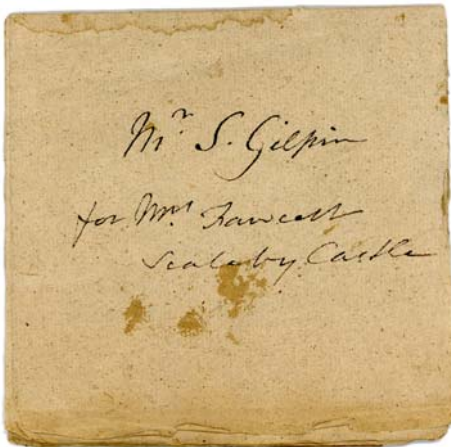 Mr S. Gilpin
for Mrs Fawcett
Scaleby Castle